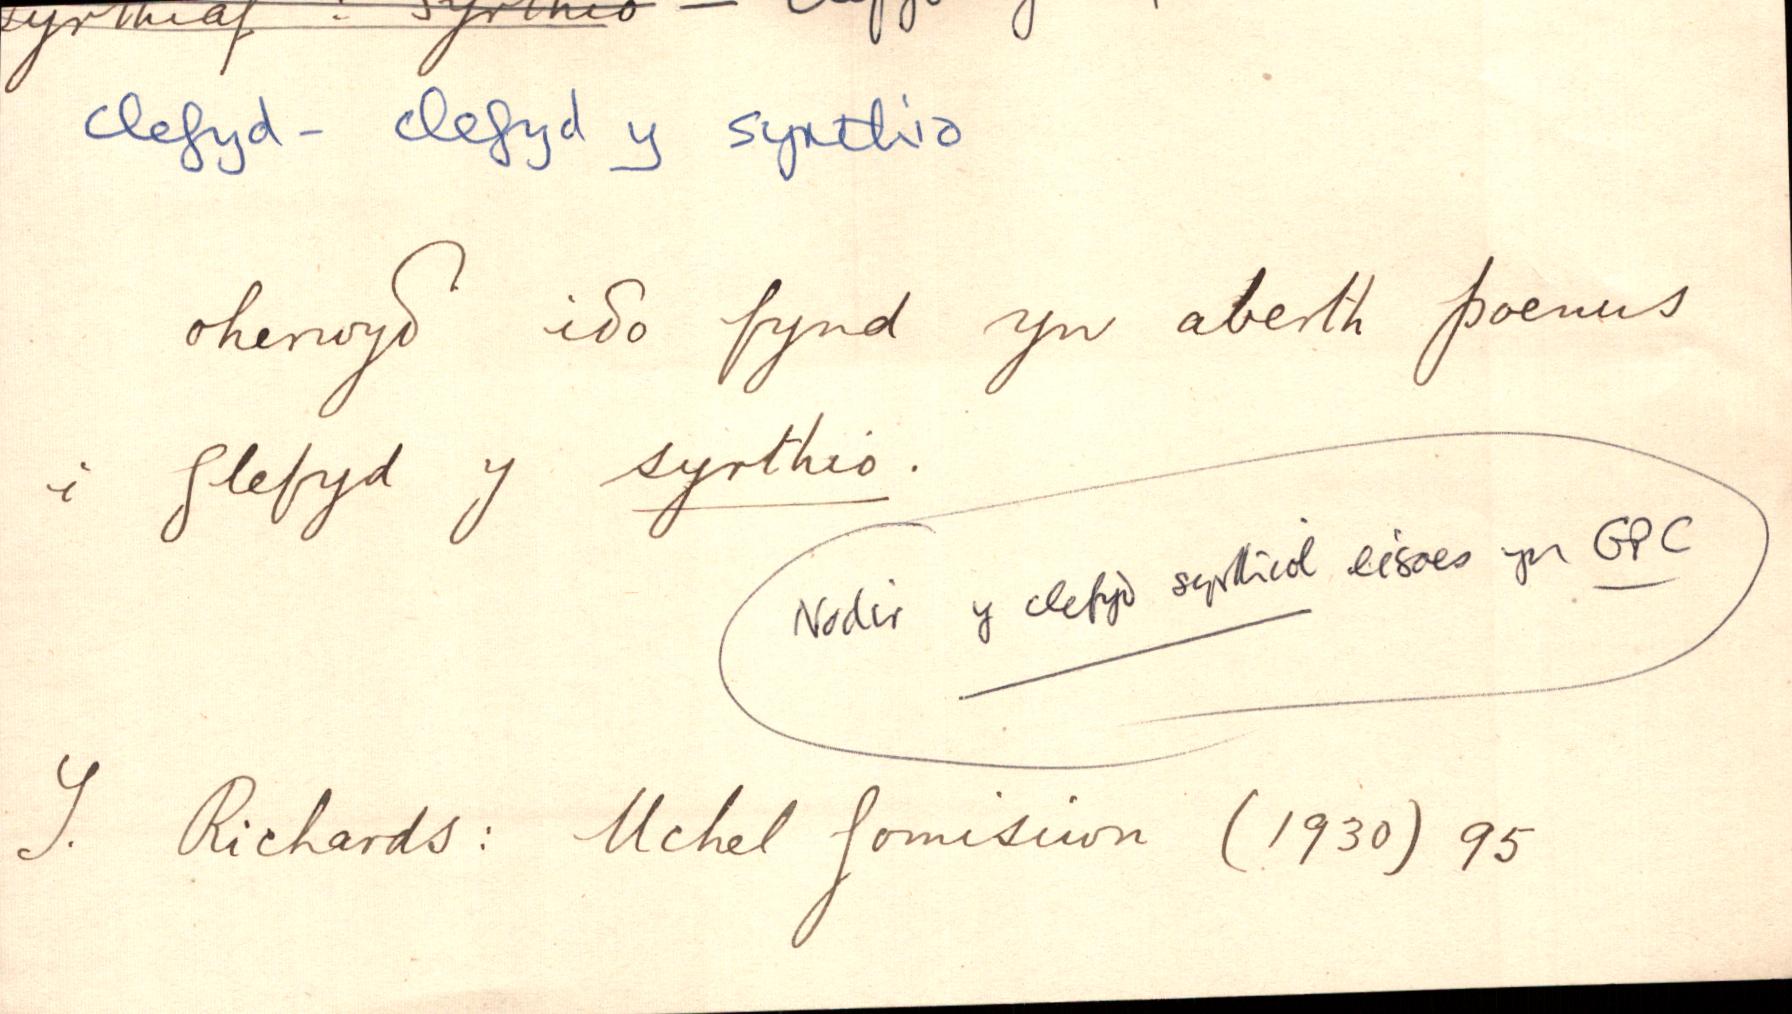 syrthiaf : syrthio —
clefyd - clefyd y syrthio
oherwyδ iδo fynd yn aberth poenus
i glefyd y syrthio.
Nodir y clefyd syrthiol eisoes yn GPC
T. Richards: Uchel Gomisiwn (1930) 95